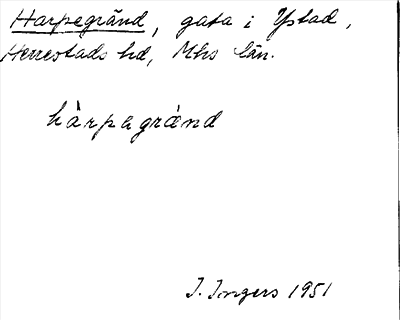 Harpegränd, gata i Ystad,
Herrestads hd, Mhs län.
hàrpagränd
I. Ingers 1951